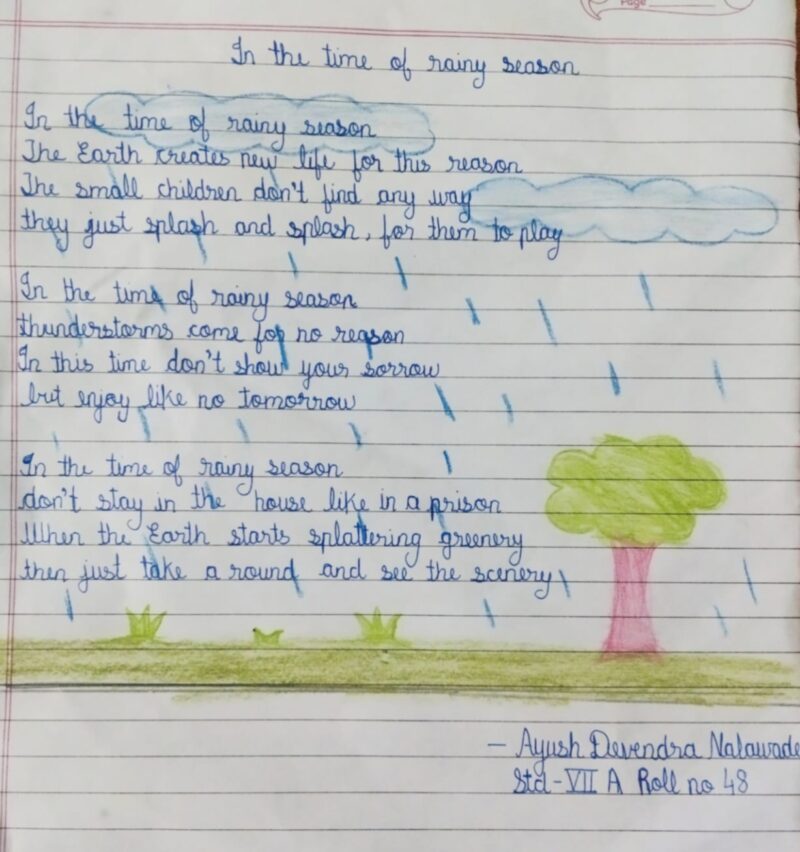 Page
In the time of rainy season
In the time of rainy season
The Earth creates new life for this reason
The small children don't find any way
they just splash and splash, for them to play
In the time of rainy season
thunderstorms come for no reason
In this time don't show your sorrow
but enjoy like no tomorrow
In the time of rainy season
don't stay in the house like in a prison
When the Earth starts splattering greenery
then just take a round and see the scenery
- Ayush Devendra Nalawade
Std - VII A Roll no 48